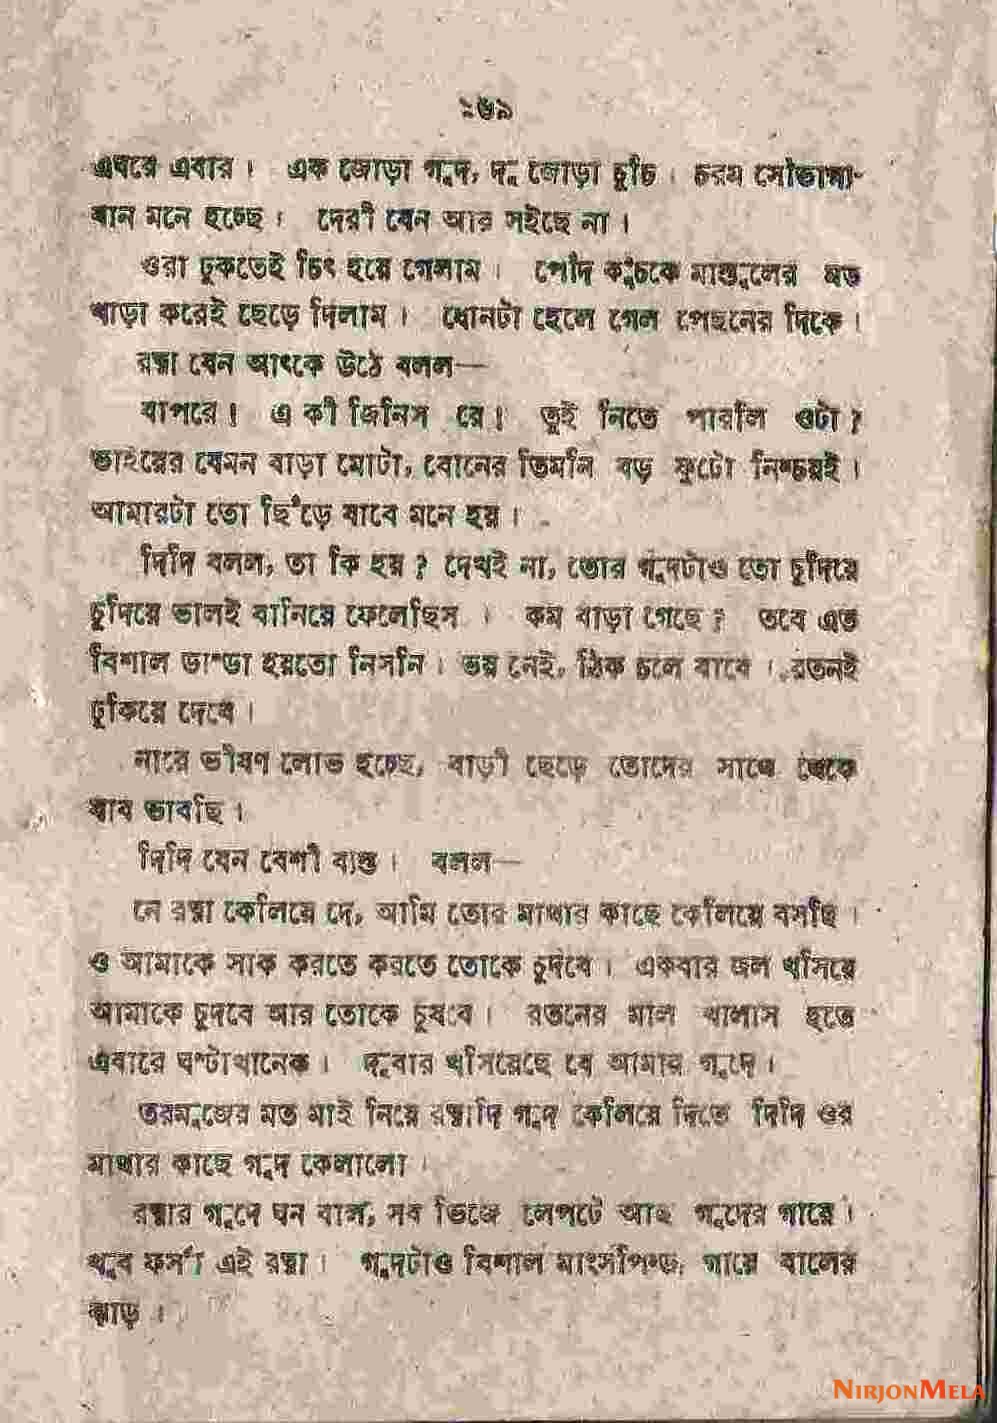 ২৬৯
এঘরে এবার। এক জোড়া গুদ, দু জোড়া চুচি। চরম সৌভাগ্য-
বান মনে হচ্ছে। দেরী যেন আর সইছে না।
ওরা ঢুকতেই চিৎ হয়ে গেলাম। পোঁদ কুঁচকে মাস্তুলের মত
খাড়া করেই ছেড়ে দিলাম। ধোনটা হেলে গেল পেছনের দিকে।
রত্না যেন আৎকে উঠে বলল—
বাপরে! এ কী জিনিস রে! তুই নিতে পারলি ওটা?
ভাইয়ের যেমন বাড়া মোটা, বোনের তিমনি বড় ফুটো নিশ্চয়ই।
আমারটা তো ছিঁড়ে যাবে মনে হয়।
দিদি বলল, তা কি হয়? দেখই না, তোর গুদটাও তো চুদিয়ে
চুদিয়ে ভালই বানিয়ে ফেলেছিস। কম বাড়া গেছে? তবে এত
বিশাল ডাণ্ডা হয়তো নিসনি। ভয় নেই, ঠিক চলে যাবে। রতনই
ঢুকিয়ে দেবে।
নারে ভীষণ লোভ হচ্ছে, বাড়ী ছেড়ে তোদের সাথে থেকে
যাব ভাবছি।
দিদি যেন বেশী ব্যস্ত। বলল—
নে রত্না কেলিয়ে দে, আমি তোর মাথার কাছে কেলিয়ে বসছি।
ও আমাকে সাক করতে করতে তোকে চুদবে। একবার জল খসিয়ে
আমাকে চুদবে আর তোকে চুষবে। রতনের মাল খালাস হতে
এবারে ঘণ্টাখানেক। দুবার খসিয়েছে যে আমার গুদে।
তরমুজের মত মাই নিয়ে রত্নাদি গুদ কেলিয়ে দিতে দিদি ওর
মাথার কাছে গুদ কেলালো।
রত্নার গুদে ঘন বাল, সব ভিজে লেপটে আছ গুদের গায়ে।
খুব ফর্সা এই রত্না। গুদটাও বিশাল মাংসপিণ্ড, গায়ে বালের
ঝাড়।
NIRJONMELA